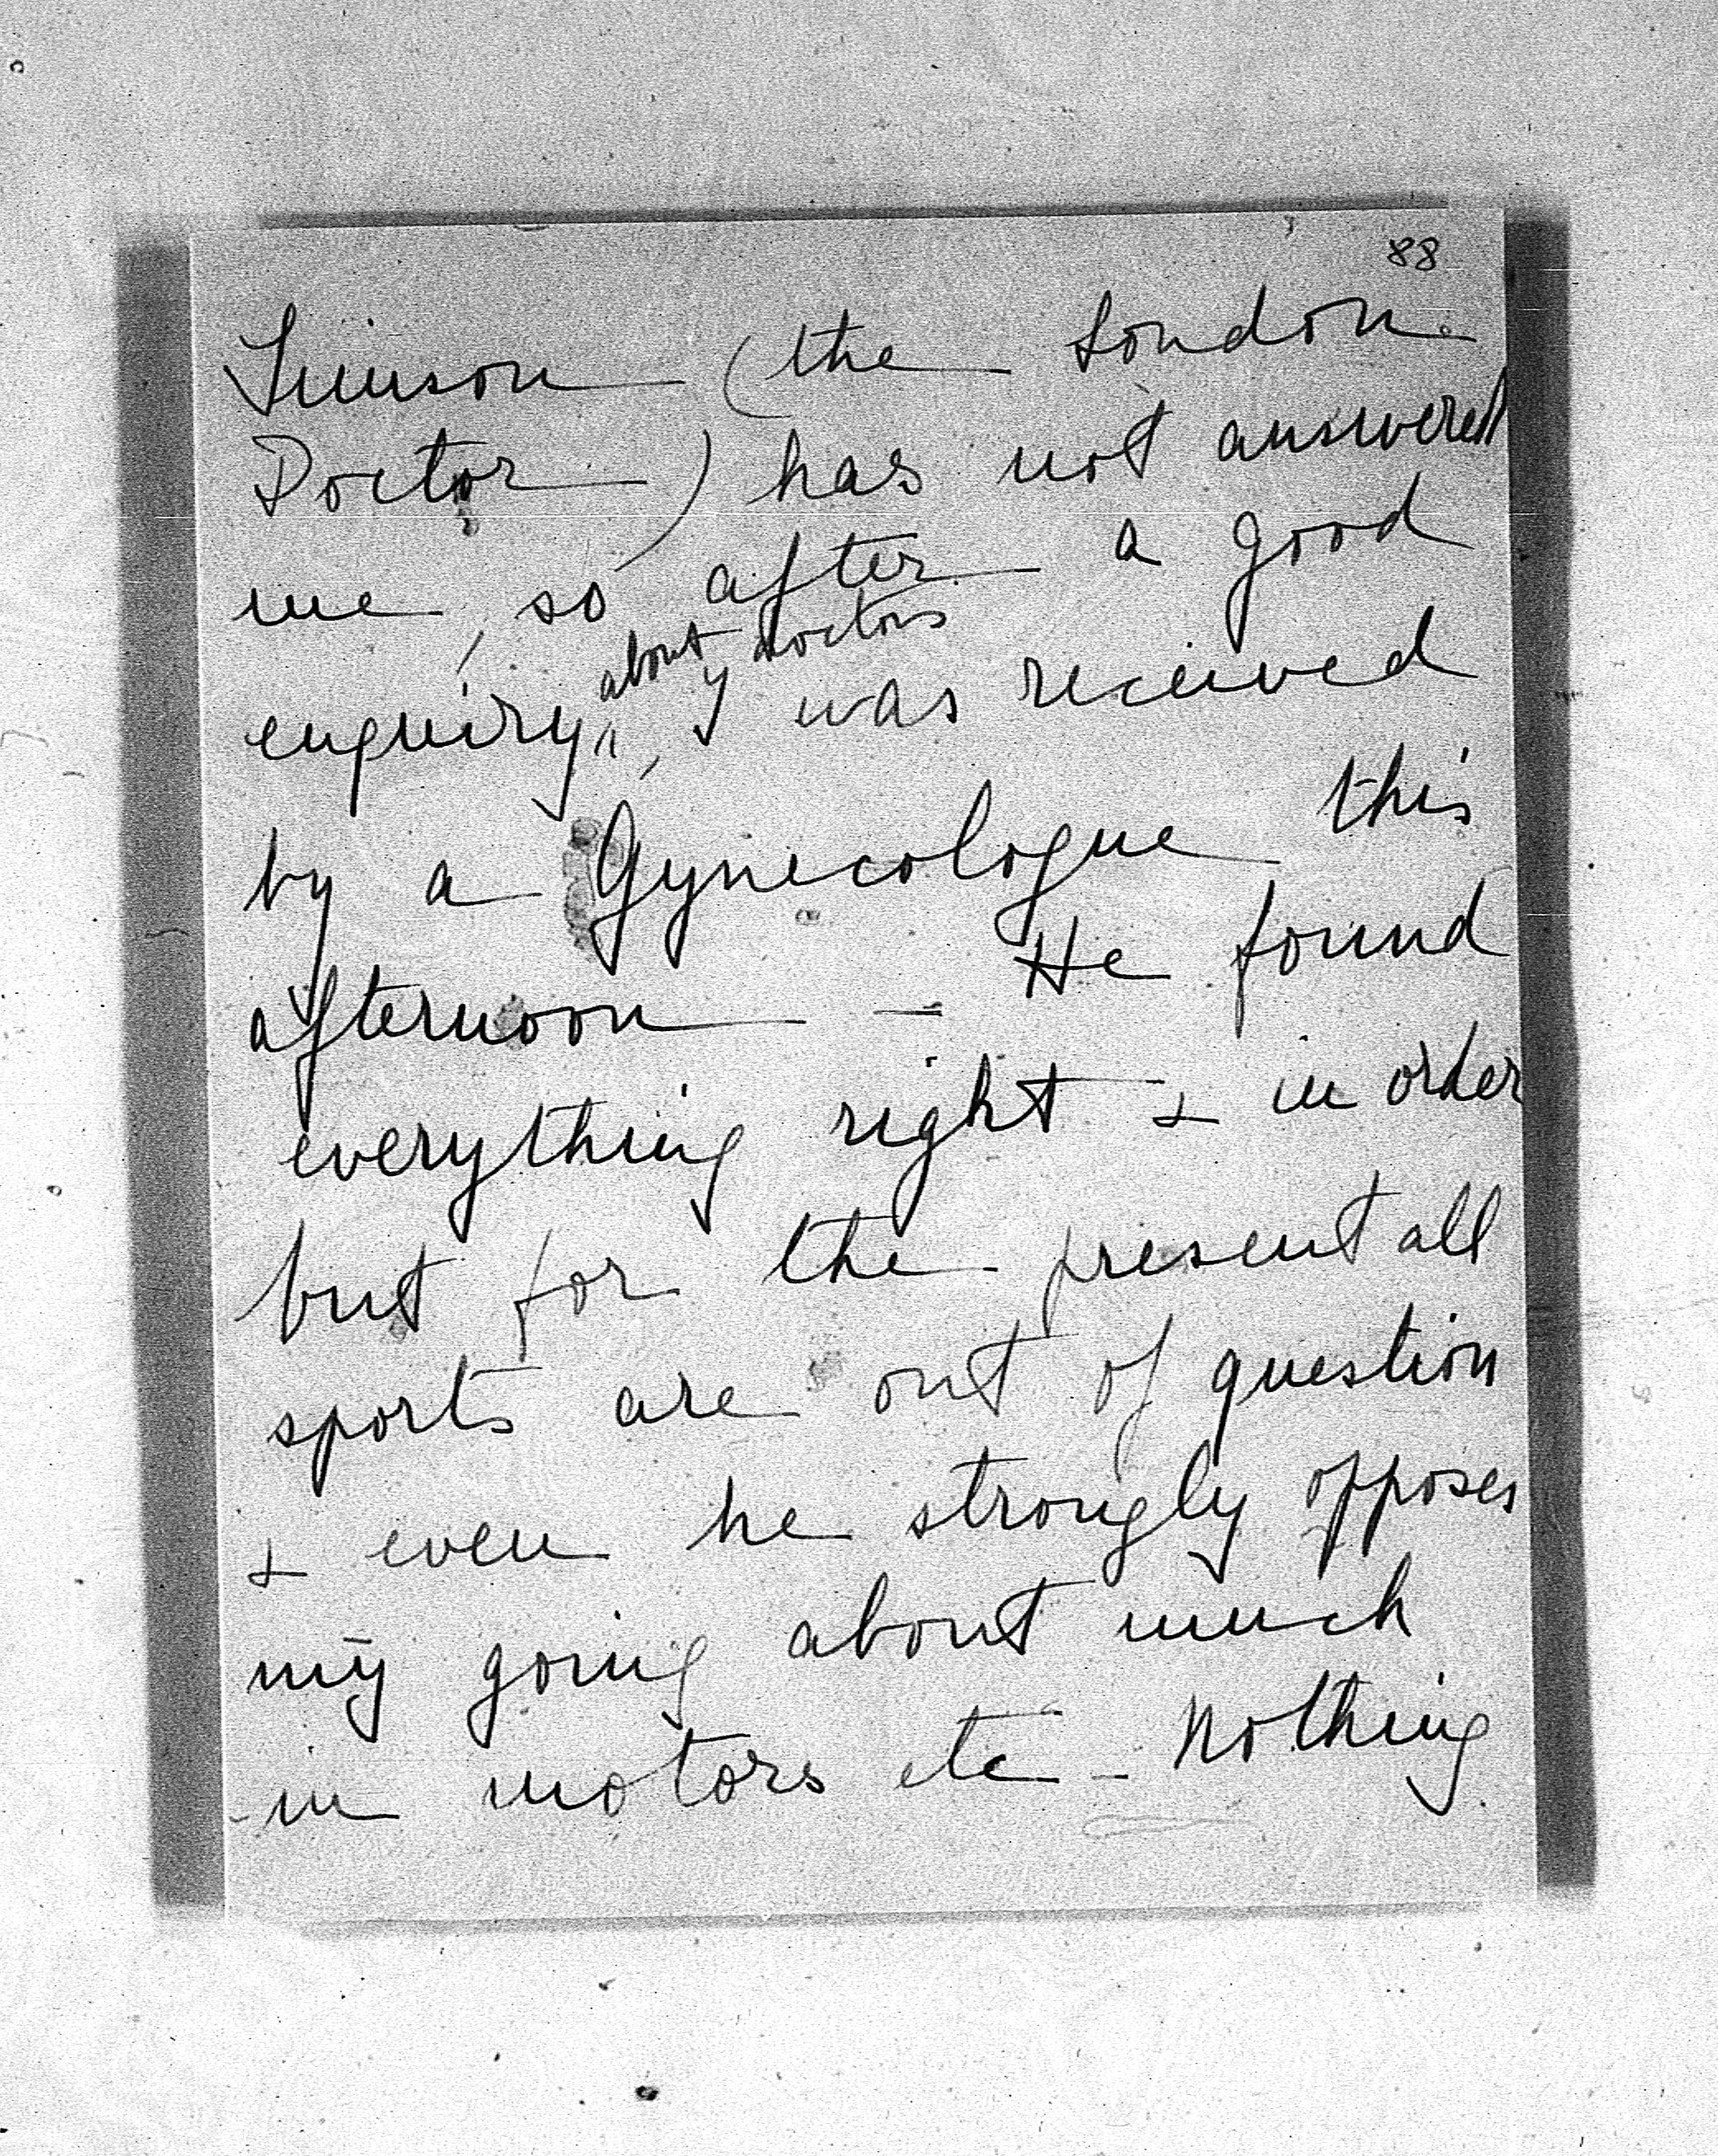 88
Simson (the London
Doctor) has not answered
me, so after a good
about doctors
enquiry, I was received
by a Gynecologue this
afternoon — He found
everything right & in order
but for the present all
sports are out of question
& even he strongly opposes
my going about much
in motors etc - Nothing